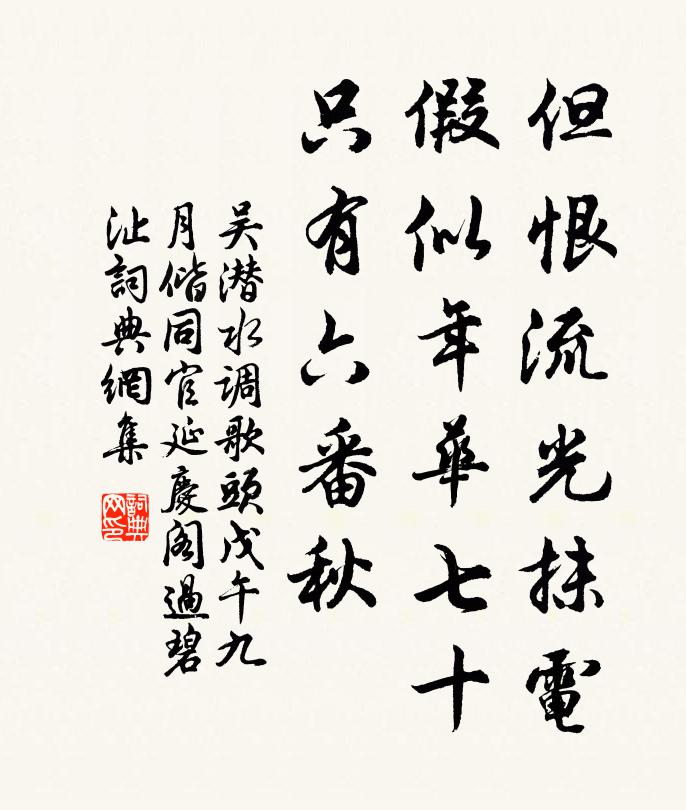 但恨流光抹電
假似年華七十
只有六番秋
吴潜水调歌頭戊午九
月偕同官延慶阁過碧
沚詞典網集
詞典网印